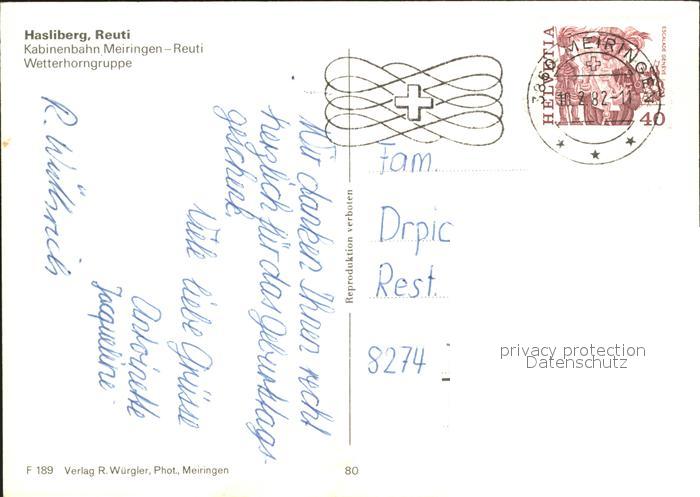 Hasliberg, Reuti
Kabinenbahn Meiringen – Reuti
Wetterhorngruppe
Wir danken Ihnen recht
herzlich für das Geburtstags-
geschenk.
Viele liebe Grüsse
Antoinette
Jacqueline
R. Wüthrich
Reproduktion verboten
HELVETIA
ESCALADE GENÈVE
40
3860 MEIRINGEN
82-11
Fam.
Drpic
Rest.
8274
privacy protection
Datenschutz
F 189 Verlag R. Würgler, Phot., Meiringen
80